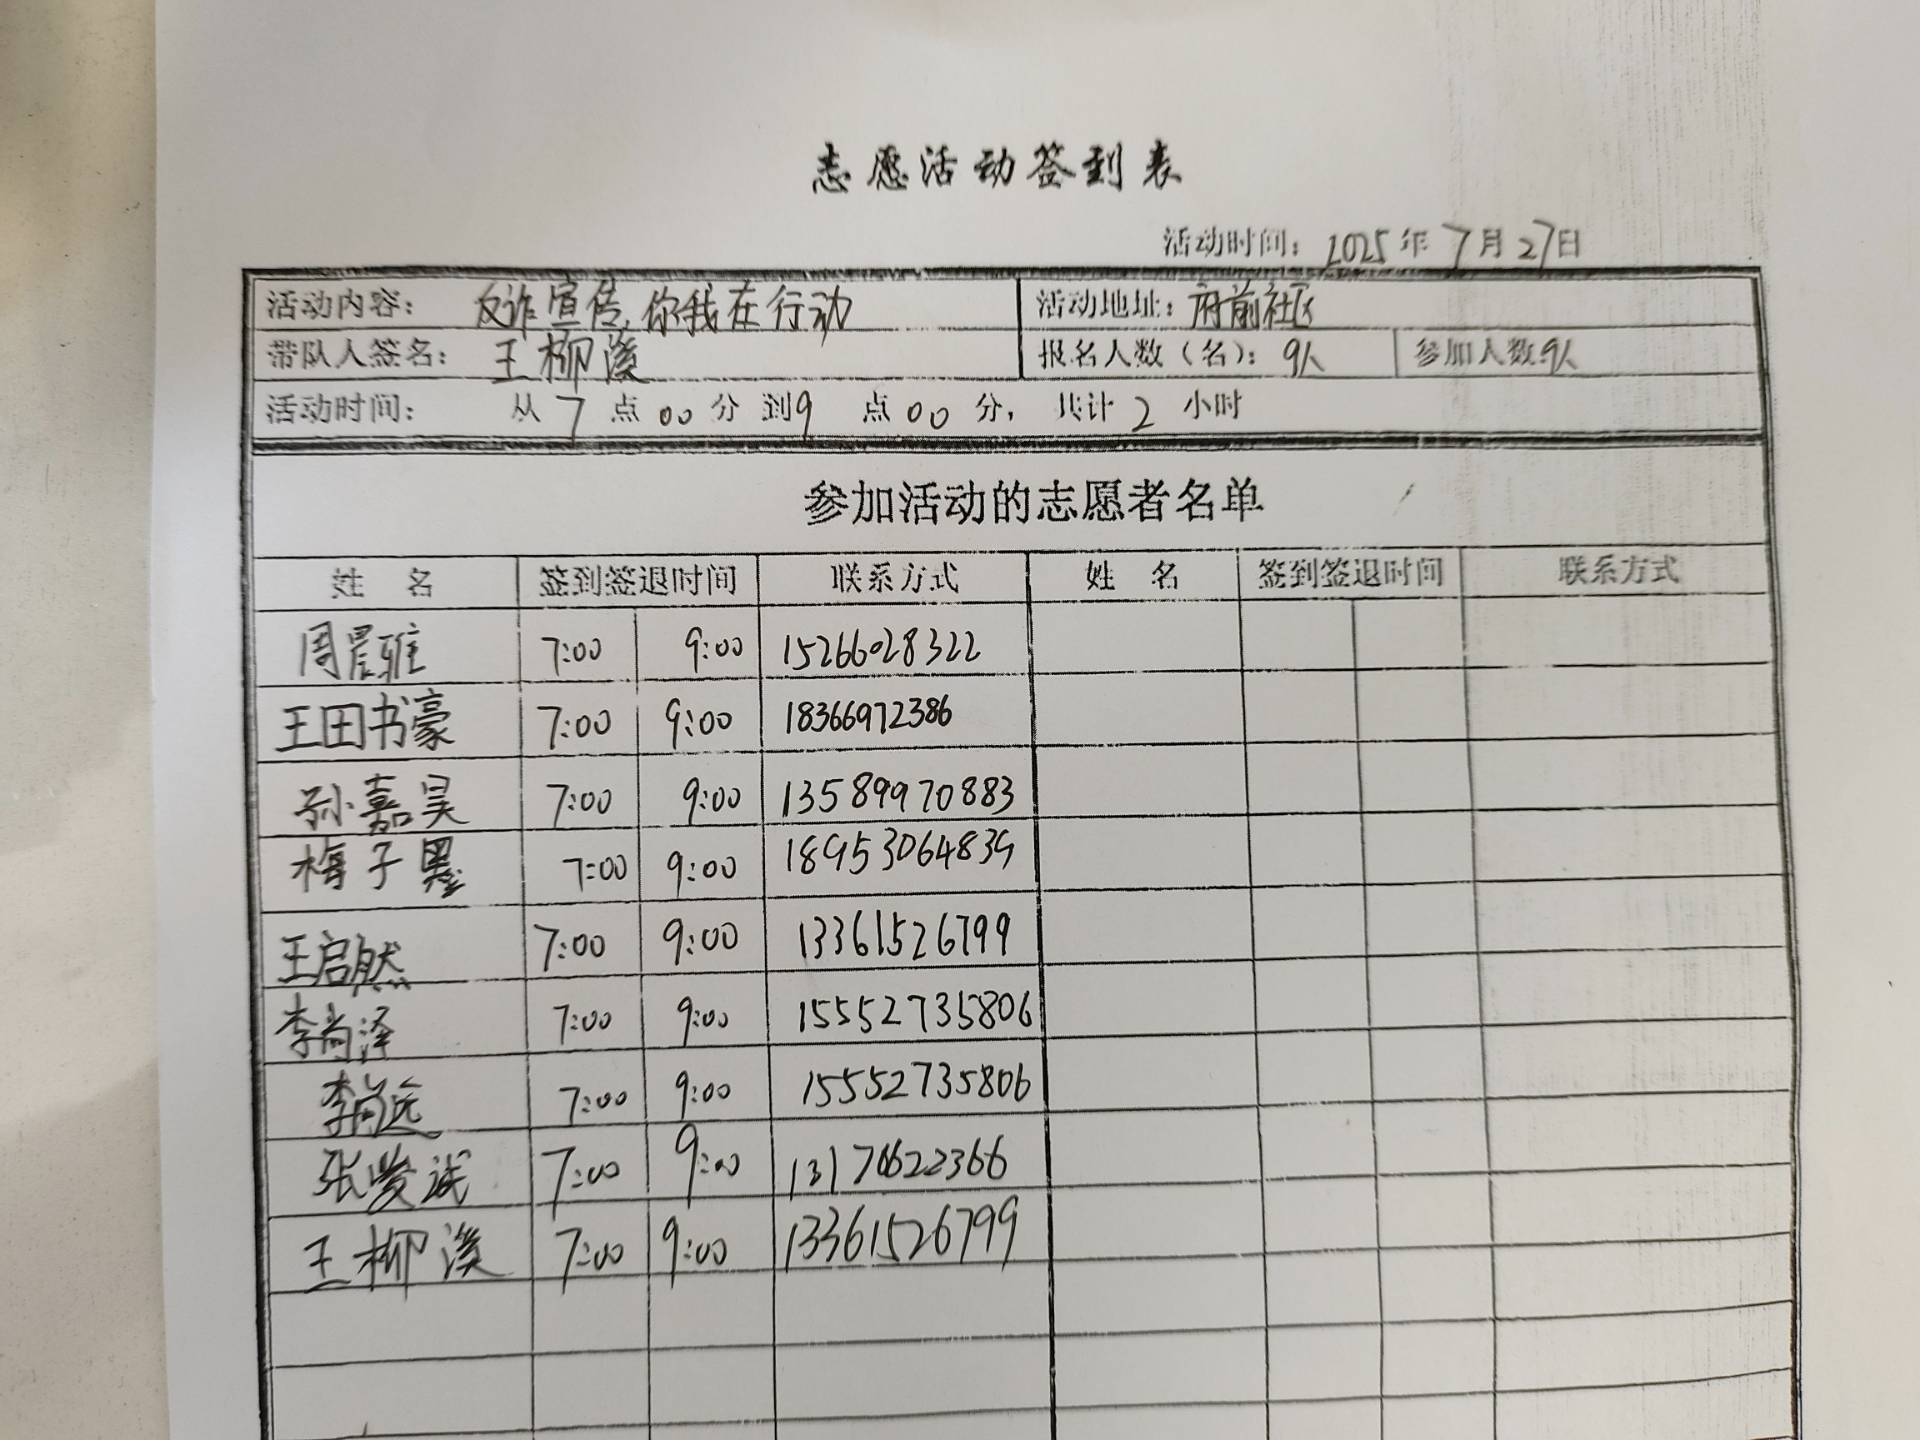 志愿活动签到表
活动时间：2025年7月27日
活动内容：反诈宣传，你我在行动 活动地址：府前社区
带队人签名：王柳溪 报名人数（名）：9人 参加人数9人
活动时间：从7点00分到9点00分，共计2小时
参加活动的志愿者名单
姓名 签到签退时间 联系方式 姓名 签到签退时间 联系方式
周晨雅 7:00 9:00 15266028322
王田书豪 7:00 9:00 18366972386
孙嘉昊 7:00 9:00 13589970883
梅子墨 7:00 9:00 18953064839
王启然 7:00 9:00 13361526799
李尚泽 7:00 9:00 15552735806
李尚远 7:00 9:00 15552735806
张峻诚 7:00 9:00
王柳溪 7:00 9:00 13361526799